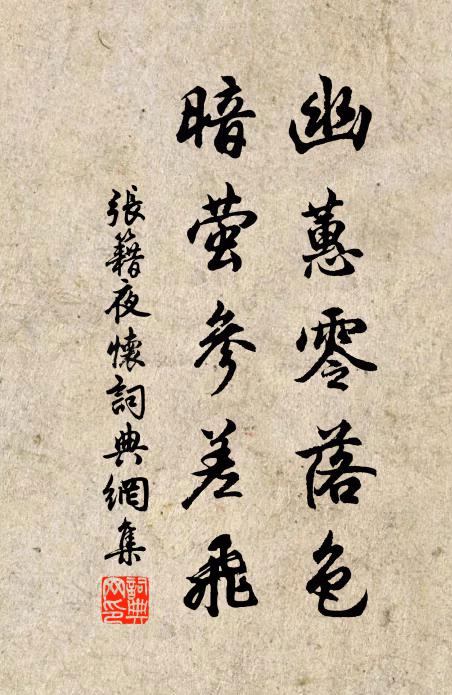 幽蕙零落色
暗萤參差飛
張籍夜懷詞典網集
詞典
网印